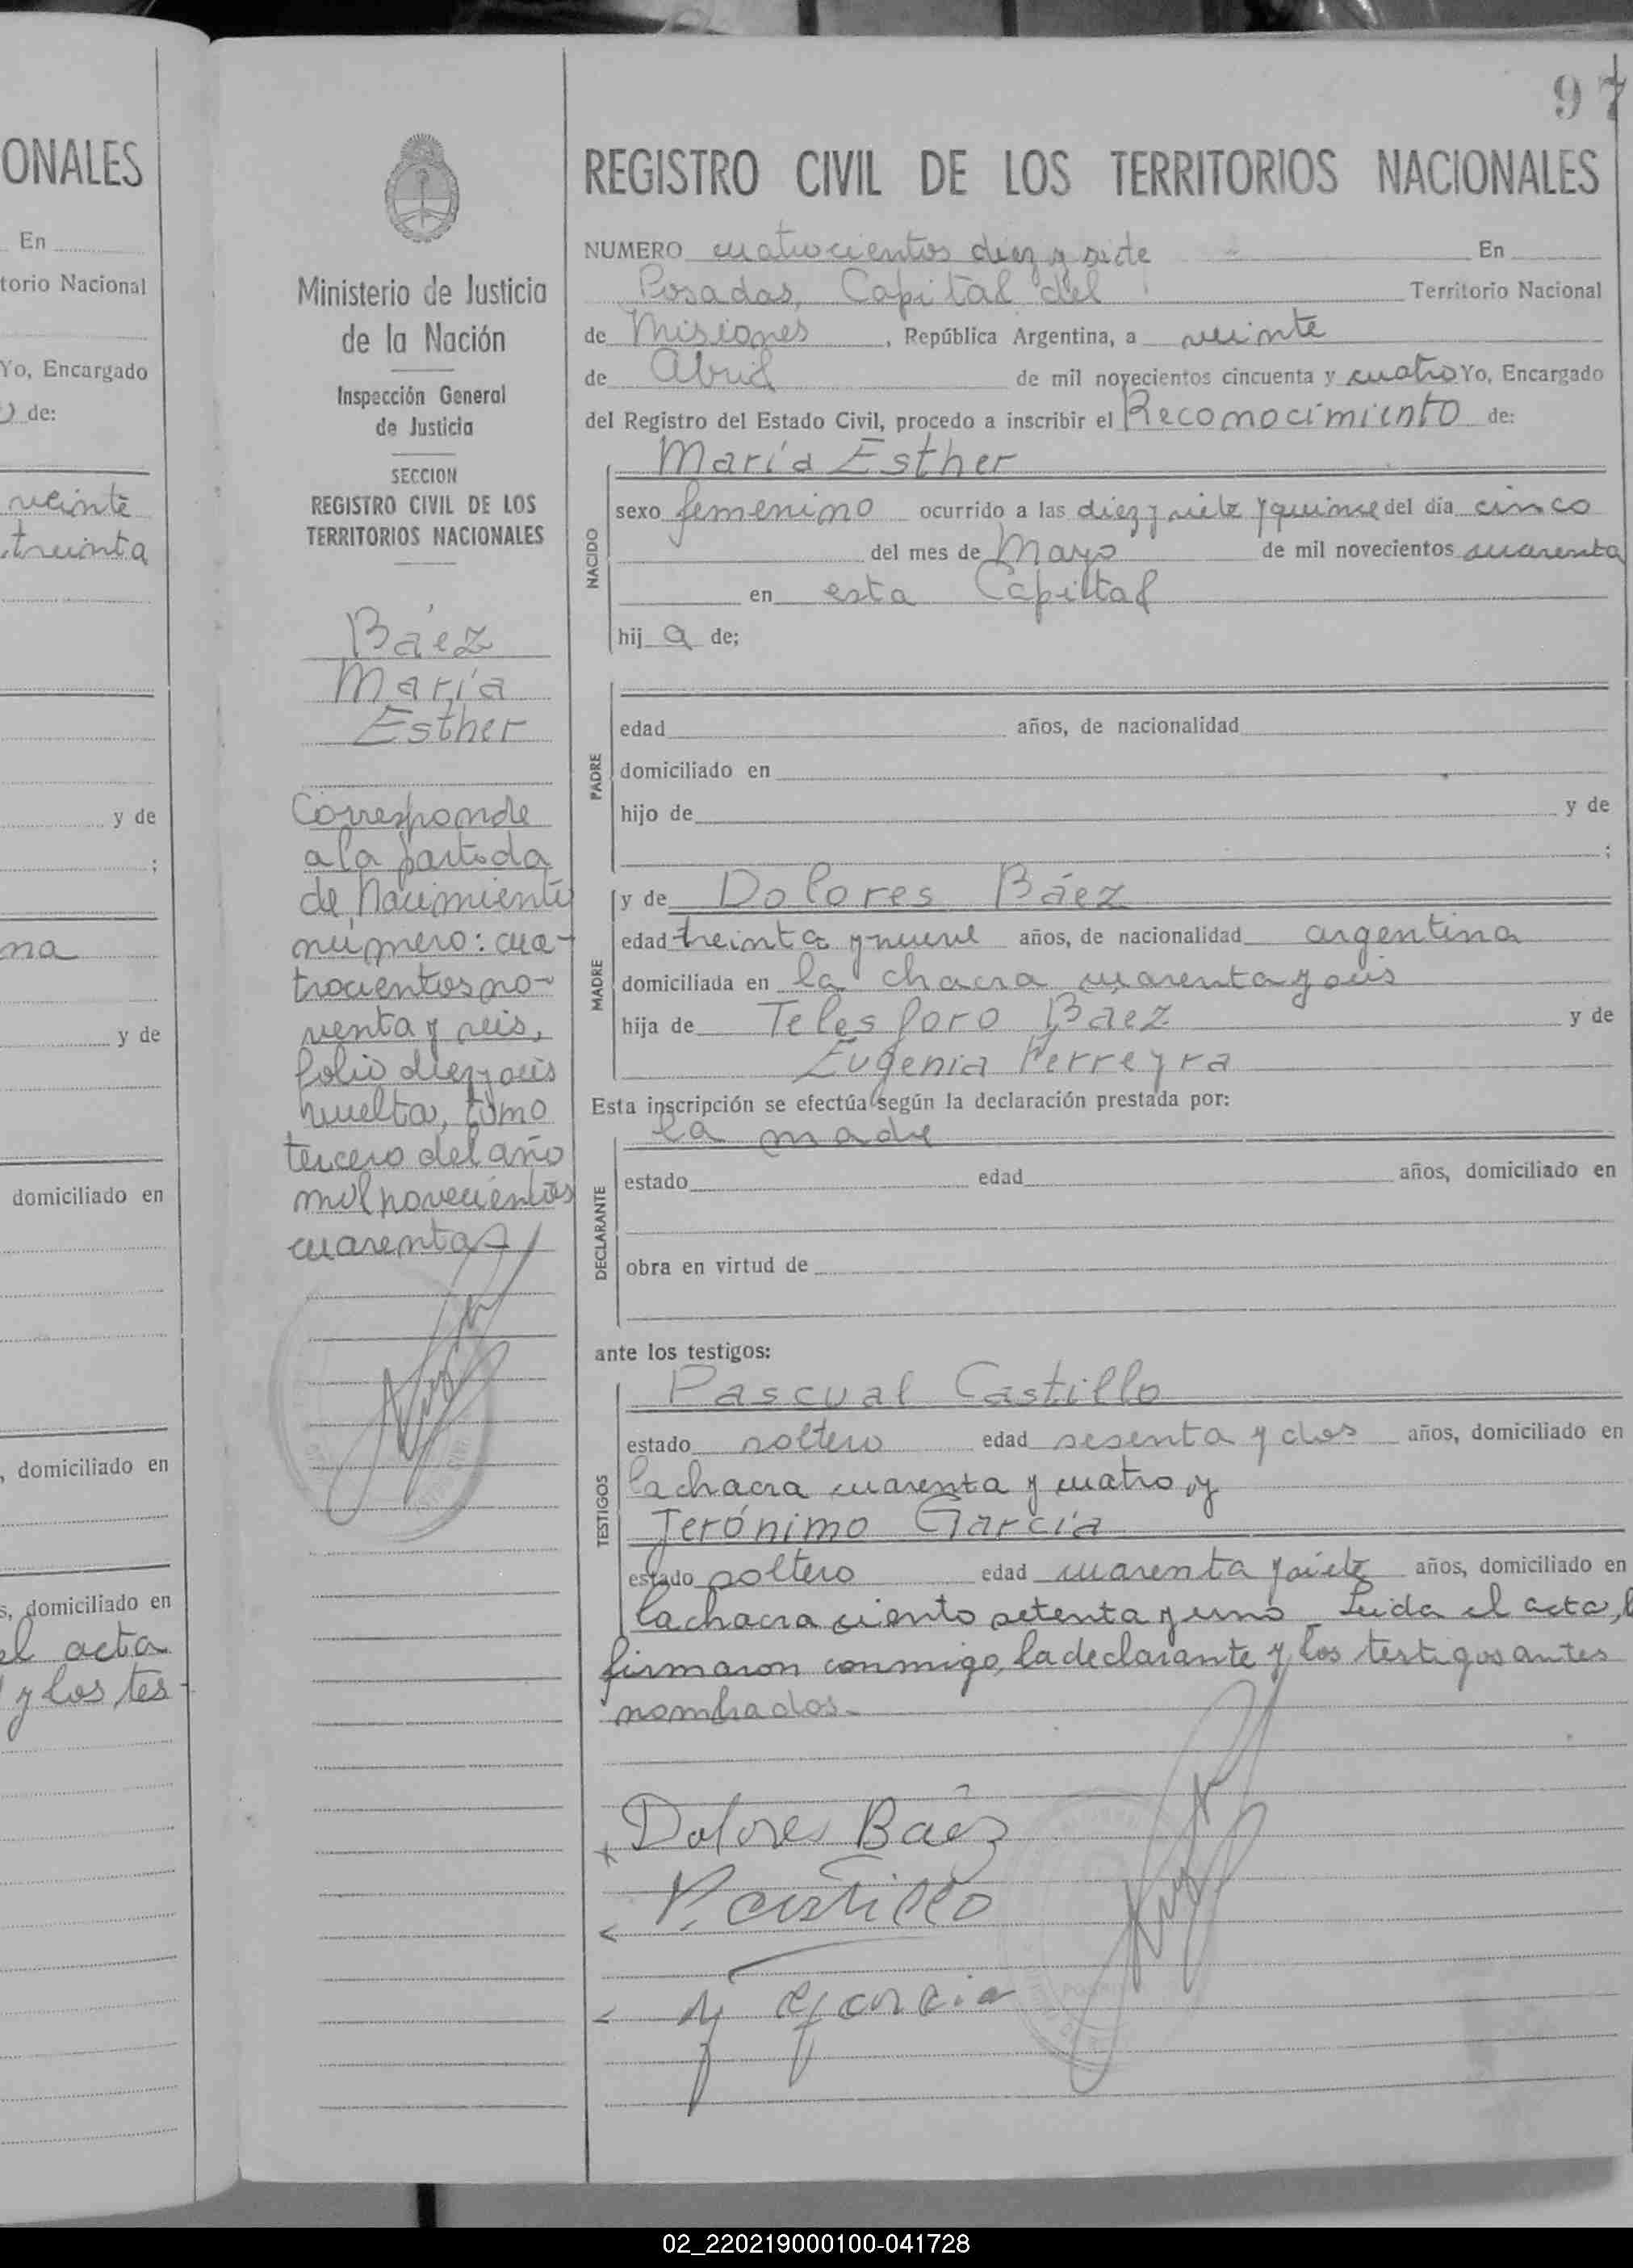 ONALES
En
torio Nacional
Yo, Encargado
) de:
veinte
treinta
y de
;
na
y de
domiciliado en
, domiciliado en
s, domiciliado en
el acta
y los tes-
Ministerio de Justicia
de la Nación
Inspección General
de Justicia
SECCION
REGISTRO CIVIL DE LOS
TERRITORIOS NACIONALES
Báez
María
Esther
Corresponde
a la partida
de Nacimiento
número: cua-
trocientos no-
venta y seis,
folio diez y seis
vuelta, tomo
tercero del año
mil novecientos
cuarenta
97
REGISTRO CIVIL DE LOS TERRITORIOS NACIONALES
NUMERO cuatrocientos diez y siete En
Posadas, Capital del Territorio Nacional
de Misiones, República Argentina, a veinte
de Abril de mil novecientos cincuenta y cuatro Yo, Encargado
del Registro del Estado Civil, procedo a inscribir el Reconocimiento de:
María Esther
NACIDO
sexo femenino ocurrido a las diez y siete y quince del día cinco
del mes de Mayo de mil novecientos cuarenta
en esta Capiltal
hij a de;
PADRE
edad años, de nacionalidad
domiciliado en
hijo de y de
;
MADRE
y de Dolores Báez
edad treinta y nueve años, de nacionalidad argentina
domiciliada en la chacra cuarenta y seis
hija de Telesforo Báez y de
Eugenia Ferreyra
Esta inscripción se efectúa según la declaración prestada por:
la madre
DECLARANTE
estado edad años, domiciliado en
obra en virtud de
ante los testigos:
Pascual Castillo
TESTIGOS
estado soltero edad sesenta y dos años, domiciliado en
la chacra cuarenta y cuatro, y
Jerónimo García
estado soltero edad cuarenta y siete años, domiciliado en
la chacra ciento setenta y uno Leida el acta, l
firmaron conmigo, la declarante y los testigos antes
nombrados.-
Dolores Baéz
P. Castillo
J Garcia
02_220219000100-041728